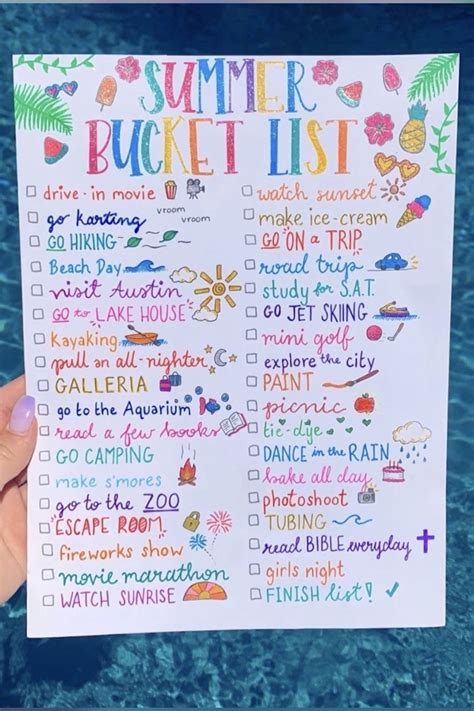 SUMMER
BUCKET LIST
drive-in movie
go karting vroom vroom
GO HIKING
Beach Day
visit Austin
GO to LAKE HOUSE
Kayaking
pull an all-nighter
GALLERIA
go to the Aquarium
read a few books
GO CAMPING
make s'mores
go to the ZOO
ESCAPE ROOM
fireworks show
movie marathon
WATCH SUNRISE
watch sunset
make ice-cream
GO ON a TRIP
road trip
study for S.A.T.
GO JET SKIING
mini golf
explore the city
PAINT
picnic
tie-dye
DANCE in the RAIN
bake all day
photoshoot
TUBING
read BIBLE everyday
girls night
FINISH list!